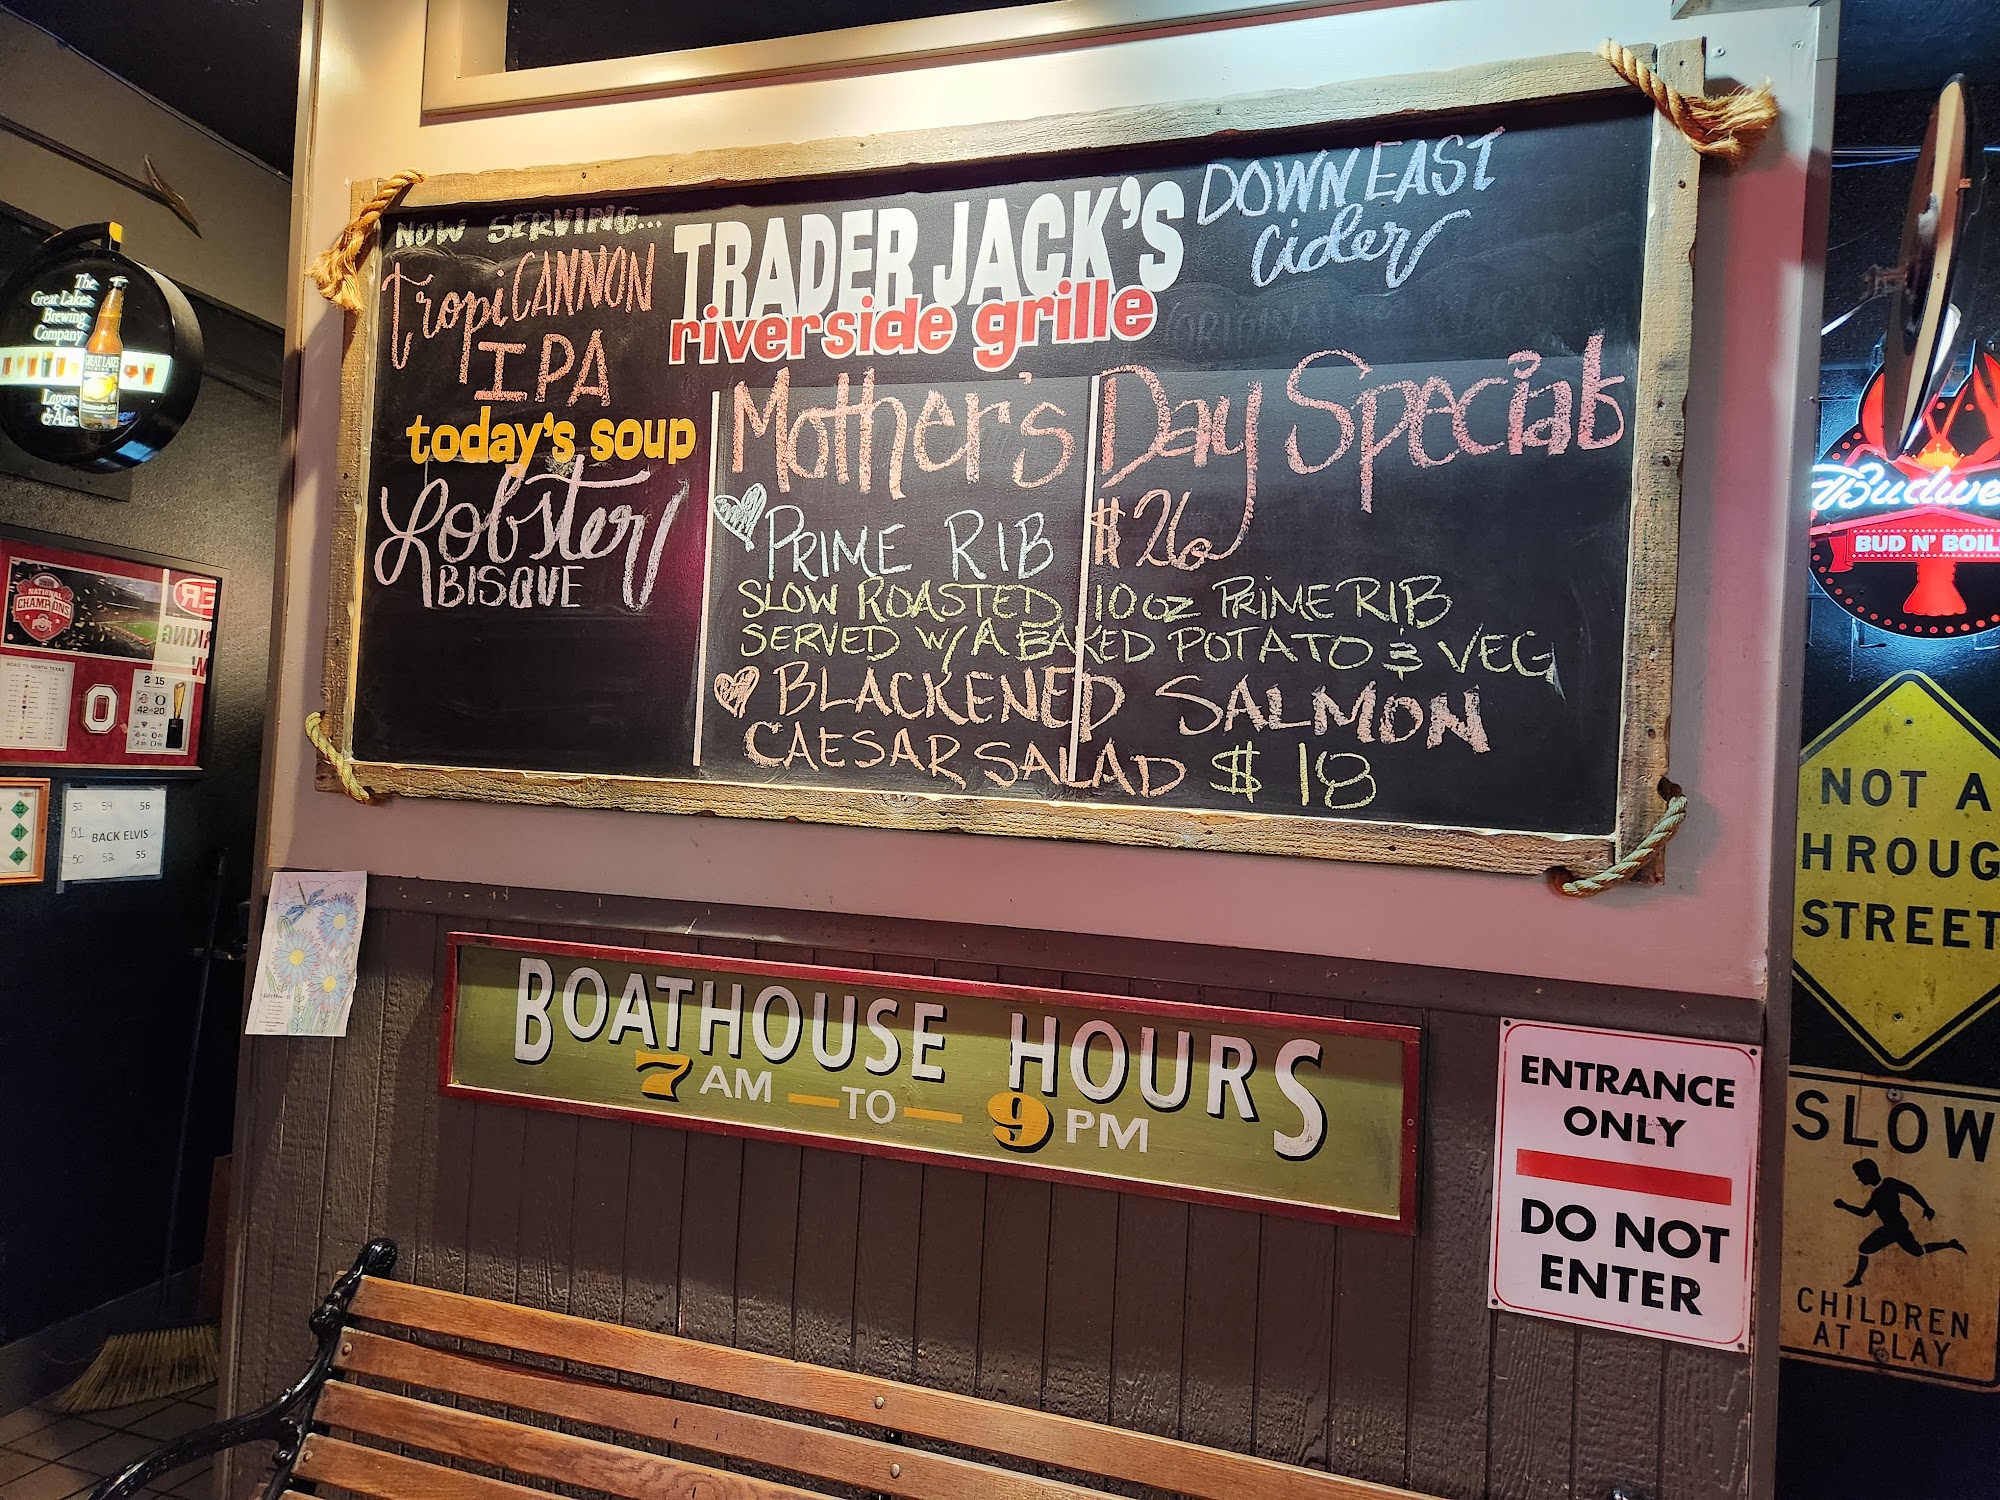 NOW SERVING...
tropiCANNON
IPA
today's soup
Lobster
BISQUE
TRADER JACK'S
riverside grille
DOWNEAST
Cider
Mother's Day Specials
PRIME RIB $26
SLOW ROASTED 10oz PRIME RIB
SERVED W/ A BAKED POTATO & VEG
BLACKENED SALMON
CAESAR SALAD $18
BOATHOUSE HOURS
7 AM — TO — 9 PM
ENTRANCE
ONLY
DO NOT
ENTER
The
Great Lakes
Brewing
Company
GREAT LAKES
Lagers
& Ales
NATIONAL
CHAMPIONS
ROAD TO NORTH TEXAS
O
42-20
53 54 56
51 BACK ELVIS
50 52 55
32
31
30
Budwe
BUD N' BOIL
NOT A
HROUG
STREET
SLOW
CHILDREN
AT PLAY